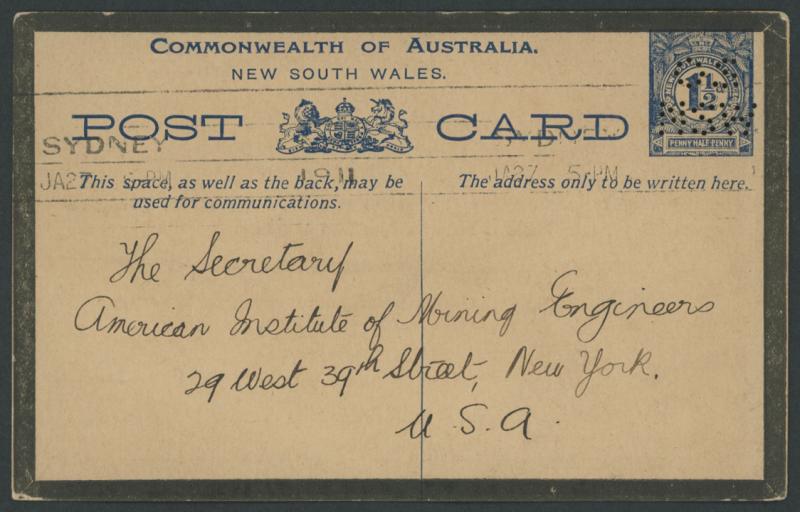 COMMONWEALTH OF AUSTRALIA.
NEW SOUTH WALES.
POST CARD
1½
PENNY HALF-PENNY
SYDNEY
JA27 5-PM
1911
JA27 5-PM
This space, as well as the back, may be
used for communications.
The address only to be written here.
The Secretary
American Institute of Mining Engineers
29 West 39th Street, New York.
U.S.A.